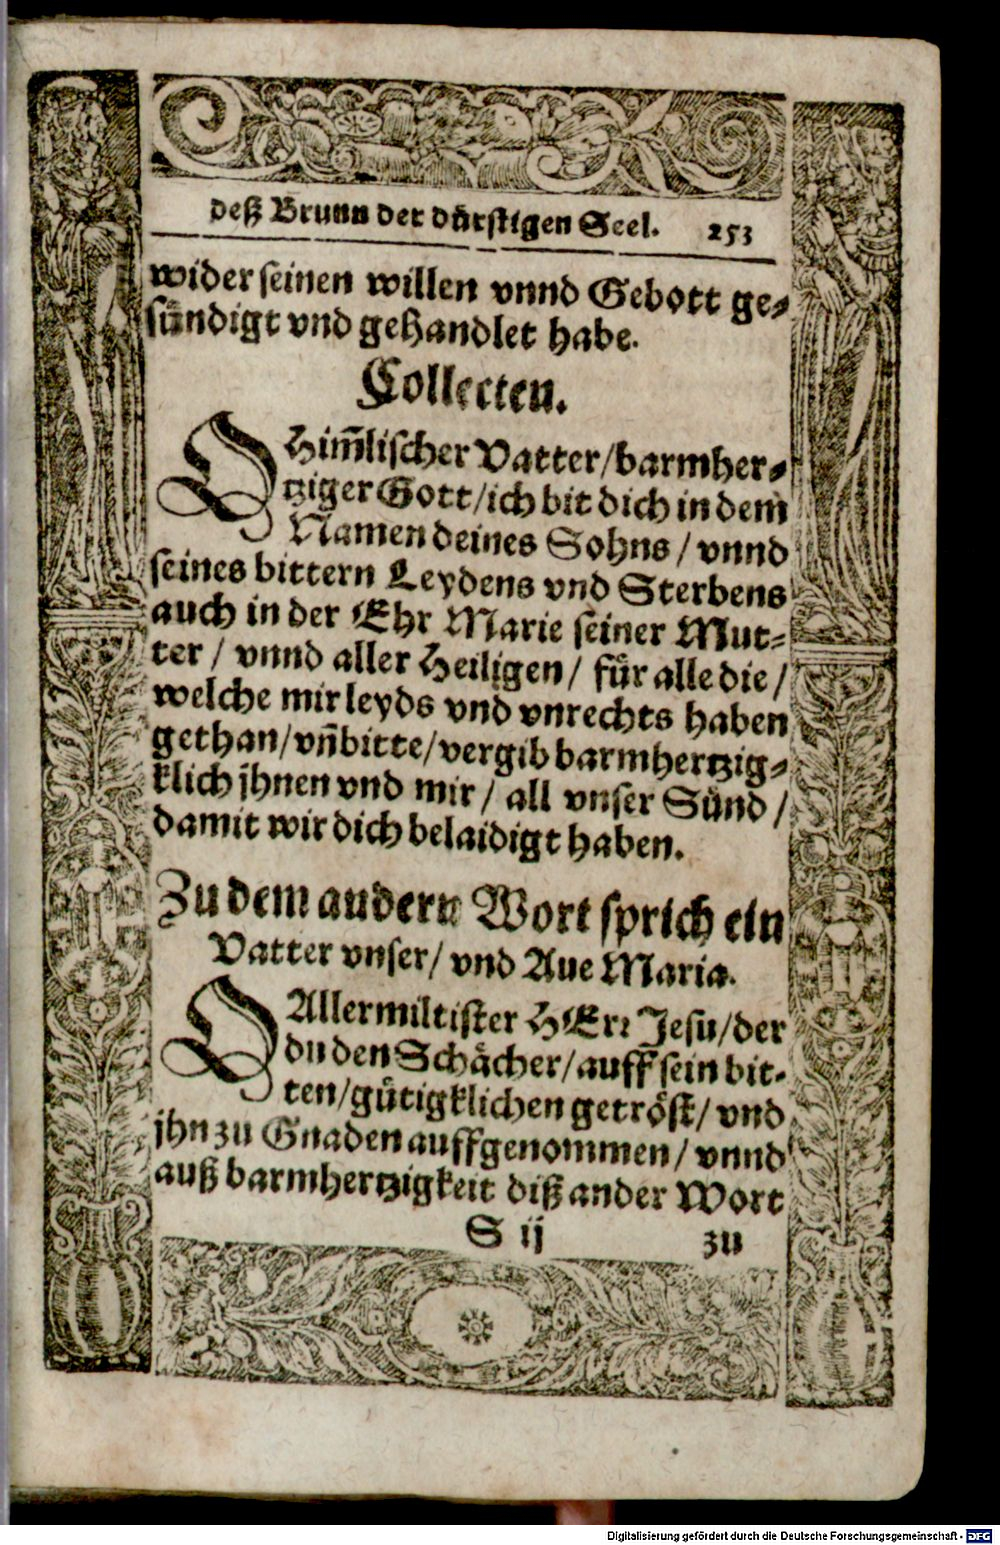 deß Brunn der dürstigen Seel. 253
wider seinen willen vnnd Gebott ge-
sündigt vnd gehandlet habe.
Collecten.
O Him̃lischer Vatter/barmher-
tziger Gott/ich bit dich in dem
Namen deines Sohns/vnnd
seines bittern Leydens vnd Sterbens
auch in der Ehr Marie seiner Mut-
ter/vnnd aller Heiligen/für alle die/
welche mir leyds vnd vnrechts haben
gethan/vñ bitte/vergib barmhertzig-
klich jhnen vnd mir/all vnser Sünd/
damit wir dich belaidigt haben.
Zu dem andern Wort sprich ein
Vatter vnser/vnd Aue Maria.
O Allermiltister HErr Jesu/der
du den Schächer/auff sein bit-
ten/gütigklichen getröst/vnd
jhn zu Gnaden auffgenommen/vnnd
auß barmhertzigkeit diß ander Wort
S ij zu
Digitalisierung gefördert durch die Deutsche Forschungsgemeinschaft - DFG